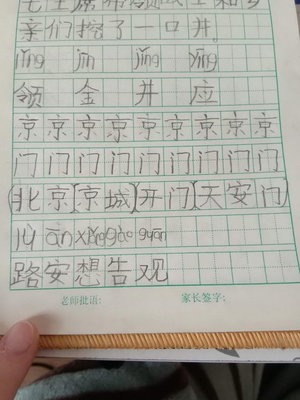 毛主席带领战士和乡
亲们挖了一口井。
lǐng jīn jǐng yīng
领 金 井 应
京京京京京京京京京
门门门门门门门门门
(北京)(京城)(开门)(天安门)
lù ān xiǎng gào guān
路安想告观
老师批语: 家长签字: